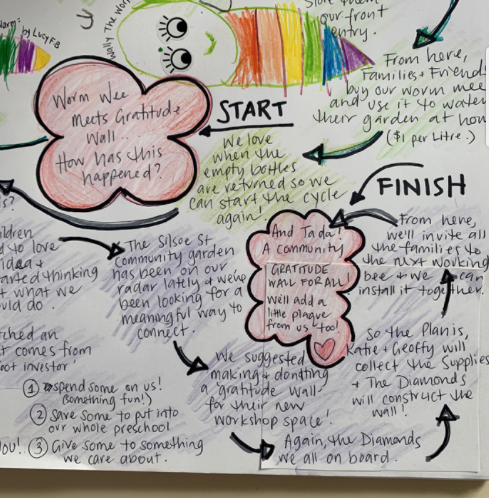 Wally The Wor
by Lucy FB
our front
entry.
Worm Wee
Meets Gratitude
Wall.
How has this
happened?
START
From here,
Families + Friends
buy our worm wee
and use it to water
their garden at hom
($1 per Litre.)
We love
when the
empty bottles
are returned so we
can start the cycle
again!
FINISH
And Tada!
A community
GRATITUDE
WALL FOR ALL!
We'll add a
little plaque
from us too!
From here,
we'll invite all
the families to
the next working
bee + we can
install it together.
ildren
to love
idea +
arted thinking
t what we
uld do.
The Silsoe St
community garden
has been on our
radar lately + we've
been looking for a
meaningful way to
connect.
tched an
t comes from
oot investor
① spend some on us!
(something fun!)
② Save some to put into
our whole preschool
you! ③ Give some to something
we care about.
We suggested
making + donating
a 'gratitude wall'
for their new
workshop space!
Again, the Diamonds
we all on board.
So the Plan is,
Katie + Geoffy will
collect the Supplies
+ The Diamonds
will construct the
wall!